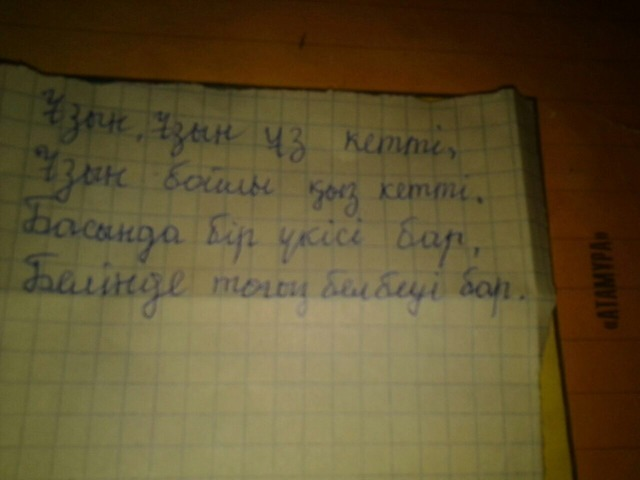 Ұзын, Ұзын ұз кетті,
Ұзын бойлы қыз кетті.
Басында бір үкісі бар,
Белінде тоғыз белбеуі бар.
«АТАМҰРА»